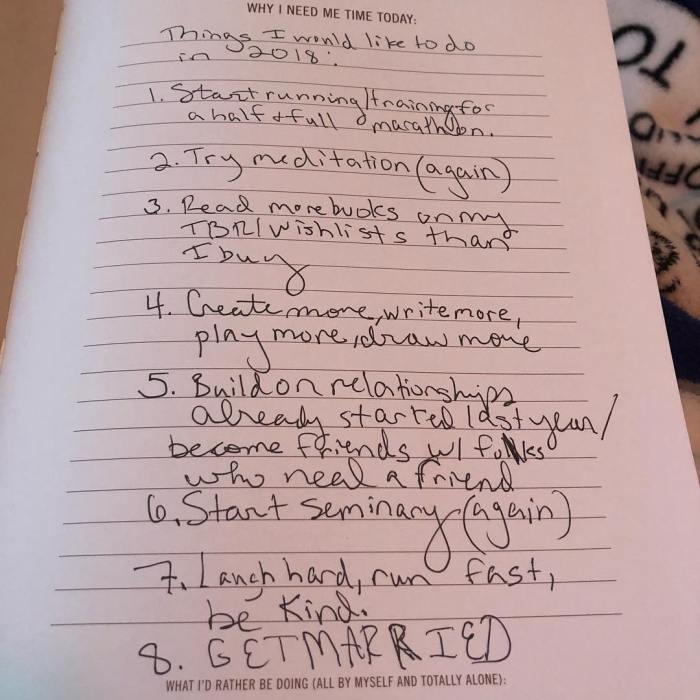 WHY I NEED ME TIME TODAY:
Things I would like to do
in 2018:
1. Start running/training for
a half + full marathon.
2. Try meditation (again)
3. Read more books on my
TBR/Wishlists than
I buy
4. Create more, write more,
play more, draw more
5. Build on relationships
already started last year/
become friends w/ folks
who neal a friend
6. Start seminary (again)
7. Laugh hard, run fast,
be kind.
8. GET MARRIED
WHAT I'D RATHER BE DOING (ALL BY MYSELF AND TOTALLY ALONE):
TO